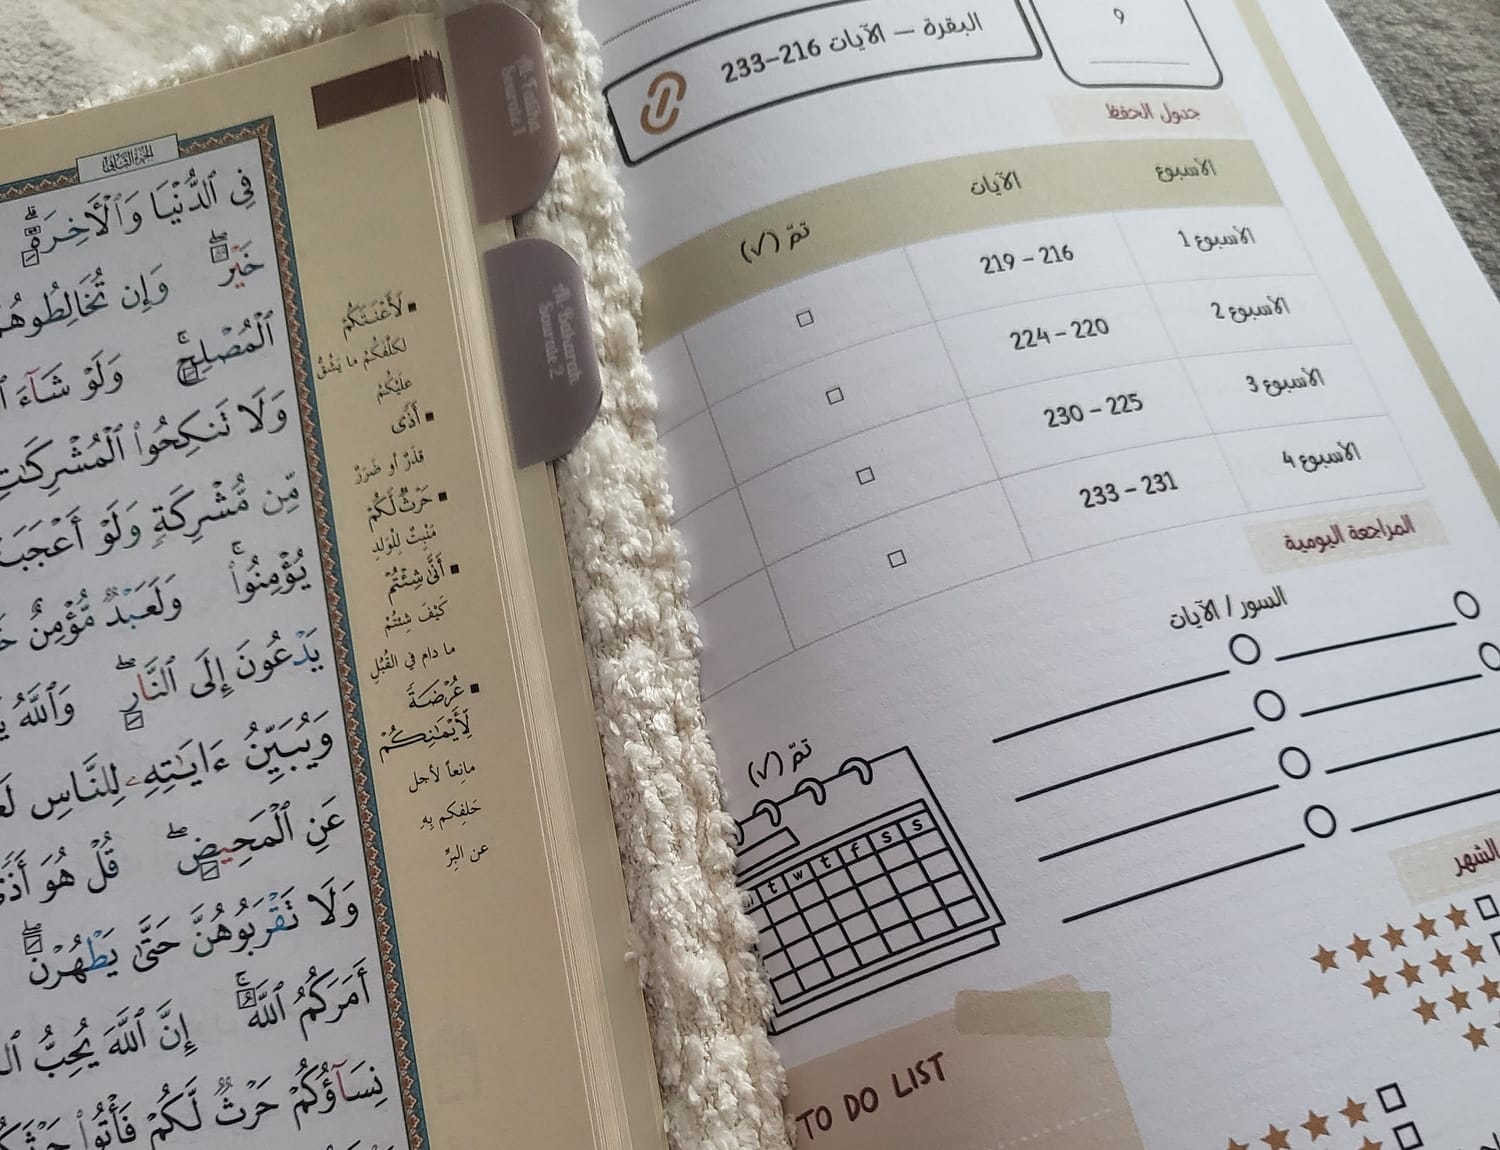 الجزء الثاني
فِي ٱلدُّنْيَا وَٱلْأَخِرَةِ
خَيْرٌ وَإِن تُخَالِطُوهُمْ
ٱلْمُصْلِحِ وَلَوْ شَآءَ
وَلَا تَنكِحُوا۟ ٱلْمُشْرِكَٰتِ
مِّن مُّشْرِكَةٍ وَلَوْ أَعْجَبَ
يُؤْمِنُوا۟ وَلَعَبْدٌ مُّؤْمِنٌ
يَدْعُونَ إِلَى ٱلنَّارِ وَٱللَّهُ
وَيُبَيِّنُ ءَايَٰتِهِۦ لِلنَّاسِ
عَنِ ٱلْمَحِيضِ قُلْ هُوَ أَذًى
وَلَا تَقْرَبُوهُنَّ حَتَّىٰ يَطْهُرْنَ
أَمَرَكُمُ ٱللَّهُ إِنَّ ٱللَّهَ يُحِبُّ
نِسَآؤُكُمْ حَرْثٌ لَّكُمْ فَأْتُوا۟
لَأَعْنَتَكُمْ
لكلَّفكُمْ ما يَشُقُّ
عَلَيْكُمْ
أَذًى
قذَرٌ أو ضَرَرٌ
حَرْثٌ لَّكُمْ
مَنْبِتٌ لِلْوَلَدِ
أَنَّىٰ شِئْتُمْ
كَيْفَ شِئتُمْ
ما دام في القُبُلِ
عُرْضَةً
لِّأَيْمَٰنِكُمْ
مانِعاً لأجل
حَلفِكم بِهِ
عن البِرِّ
Al Fatiha
Sourate 1
Al-Bakarah
Sourate 2
9
البقرة – الآيات 216–233
جدول الحفظ
الأسبوع الآيات تمّ (✓)
الأسبوع 1 216 – 219
الأسبوع 2 220 – 224
الأسبوع 3 225 – 230
الأسبوع 4 231 – 233
المراجعة اليومية
السور / الآيات
تمّ (✓)
t w t f s s
الشهر
TO DO LIST